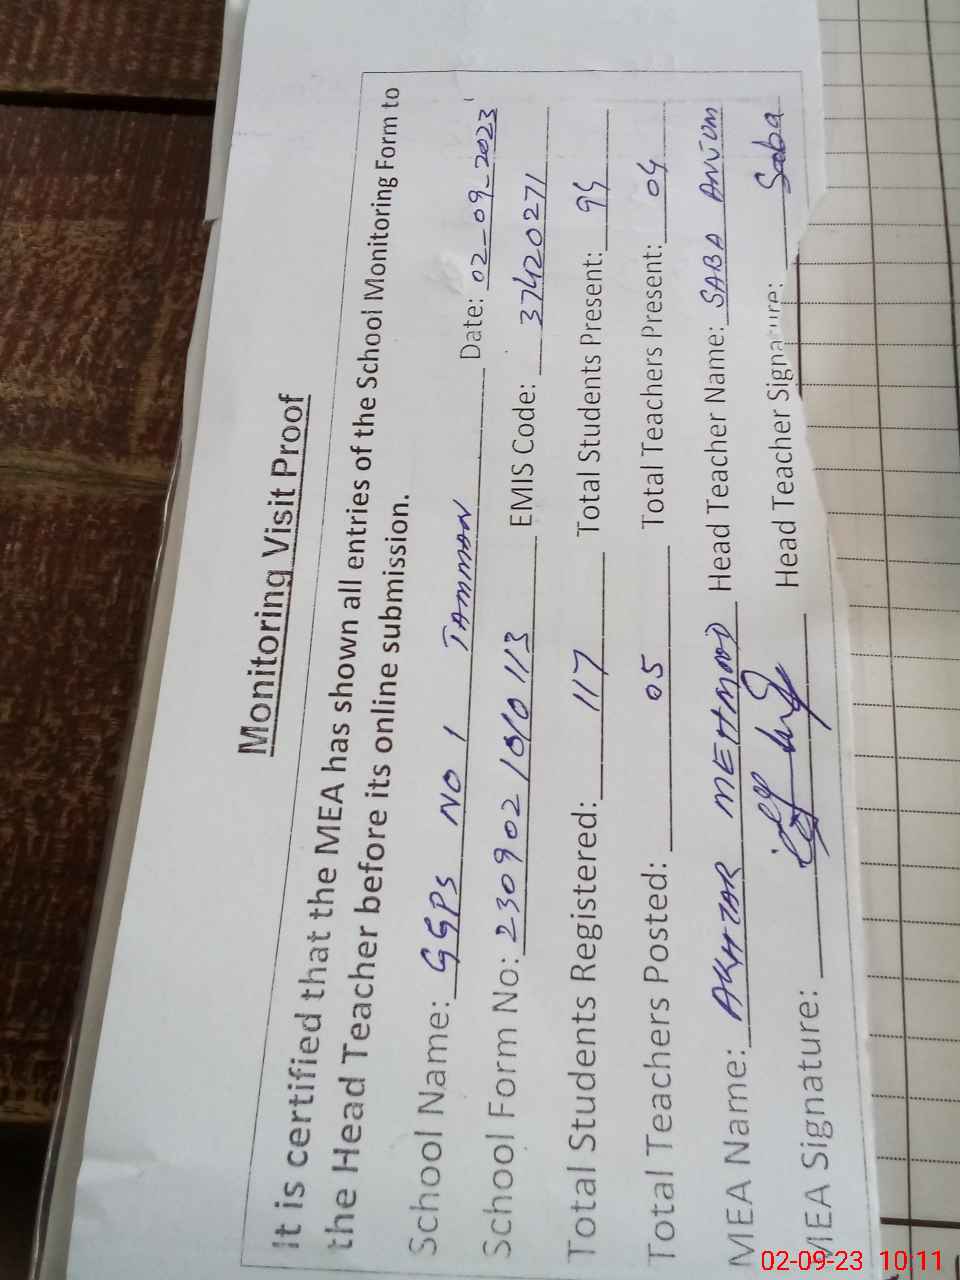 Monitoring Visit Proof
It is certified that the MEA has shown all entries of the School Monitoring Form to
the Head Teacher before its online submission.
School Name: GGPS NO 1 TAMMAN Date: 02-09-2023
School Form No: 230902 1010113 EMIS Code: 37420271
Total Students Registered: 117 Total Students Present: 94
Total Teachers Posted: 05 Total Teachers Present: 04
MEA Name: AKHTAR MEHMOOD Head Teacher Name: SABA ANJUM
MEA Signature: Head Teacher Signature: Saba
02-09-23 10:11